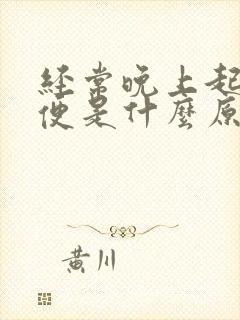 經常晚上起
便是什麼原
黃川